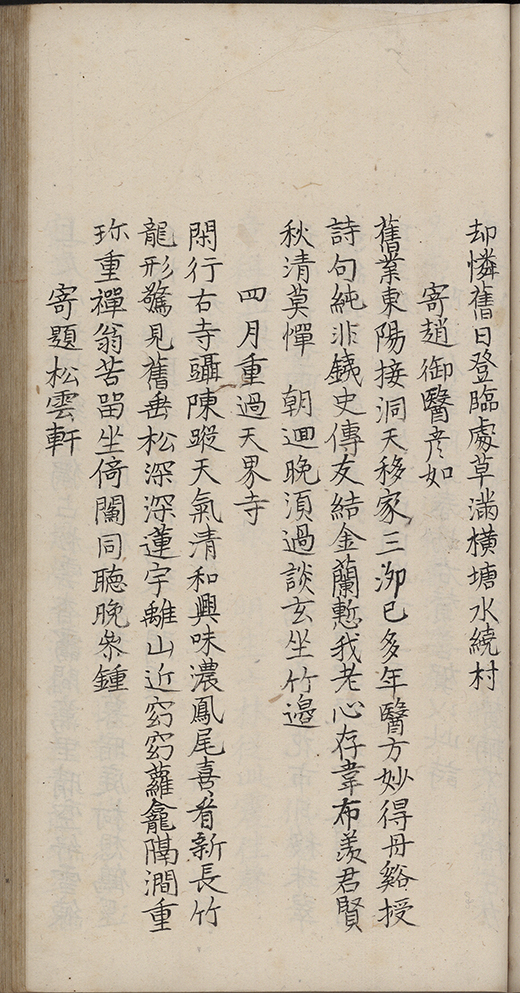 却憐舊日登臨處草滿橫塘水繞村
寄趙御醫彦如
舊業東陽接洞天移家三泖已多年醫方妙得丹谿授
詩句純非鋳史傳友結金蘭慙我老心存韋布羨君賢
秋清莫憚 朝迴晚須過談玄坐竹邊
四月重過天界寺
閑行右寺躡陳蹤天氣清和興味濃鳳尾喜看新長竹
龍形驚見舊垂松深深蓮宇離山近窈窈蘿龕隔澗重
珎重禪翁苦畱坐倚闌同聽晚叅鍾
寄題松雲軒